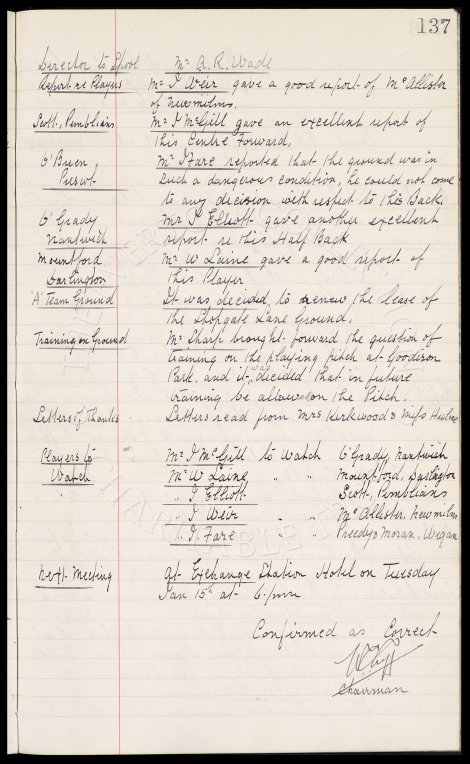 137
Director to Stoke Mr A. R. Wade
Report re Players Mr J Weir gave a good report of McAllister
of Newmilns.
Scott, Penblians Mr J McGill gave an excellent report of
this Centre Forward.
O'Brien, Mr Fare reported that the ground was in
Prescot such a dangerous condition, he could not come
to any decision with respect to this Back.
O'Grady Mr J Elliott gave another excellent
Nantwich report re this Half Back
Mountford Mr W Laine gave a good report of
Darlington this Player
'A' Team Ground It was decided, to renew the lease of
the Stopgate Lane Ground.
Training on Ground Mr Sharp brought forward the question of
training on the playing pitch at Goodison
Park, and it was decided that in future
training be allowed on the Pitch.
Letters of Thanks Letters read from Mrs Kirkwood & Miss
Players to Mr J McGill to watch O'Grady, Nantwich
Watch Mr W Laine " " Mountford, Darlington
" J Elliott Scott, Penblians
" J Weir " " McAllister, Newmilns
" H Fare " " Preedy & Moran, Wigan
Next Meeting At Exchange Station Hotel on Tuesday
Jan 15th at 6. pm
Confirmed as Correct
Chairman